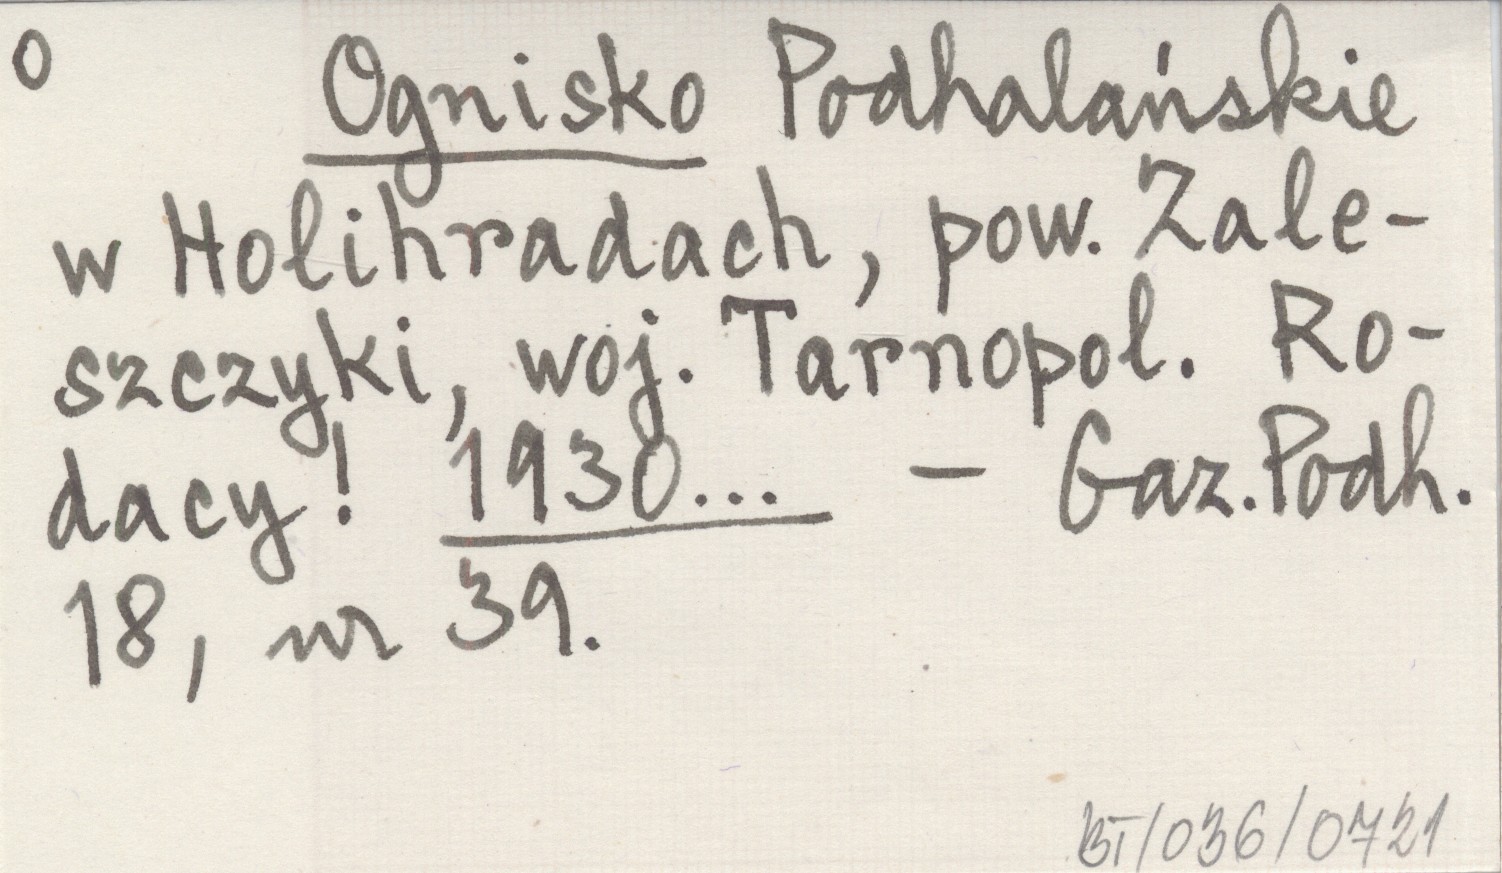 O
Ognisko Podhalańskie
w Holihradach, pow. Zale-
szczyki, woj. Tarnopol. Ro-
dacy! 1930... – Gaz. Podh.
18, nr 39.
BT/036/0721